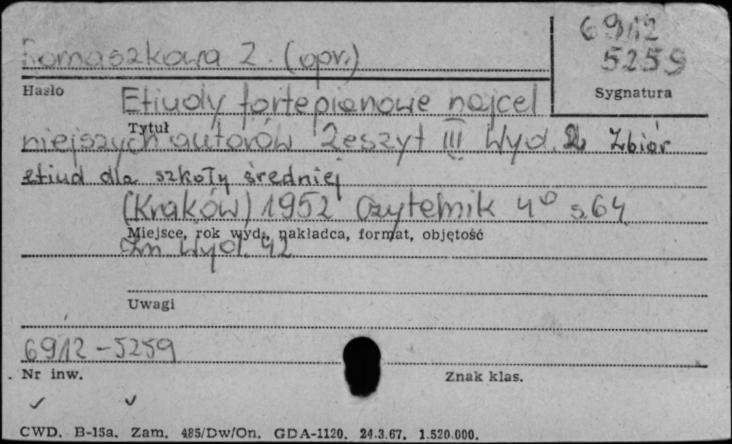 Romaszkowa Z. (opr.)
6912
5259
Hasło
Sygnatura
Etiudy fortepianowe najcel
Tytuł
niejszych autorów Zeszyt III Wyd. 2. Zbiór
etiud dla szkoły średniej
(Kraków) 1952 Czytelnik 4° s 64
Miejsce, rok wyd., nakładca, format, objętość
Zn Wyd. 42
Uwagi
6912-5259
Nr inw.
Znak klas.
CWD. B-15a. Zam. 485/Dw/On. GDA-1120. 24.3.67. 1.520.000.